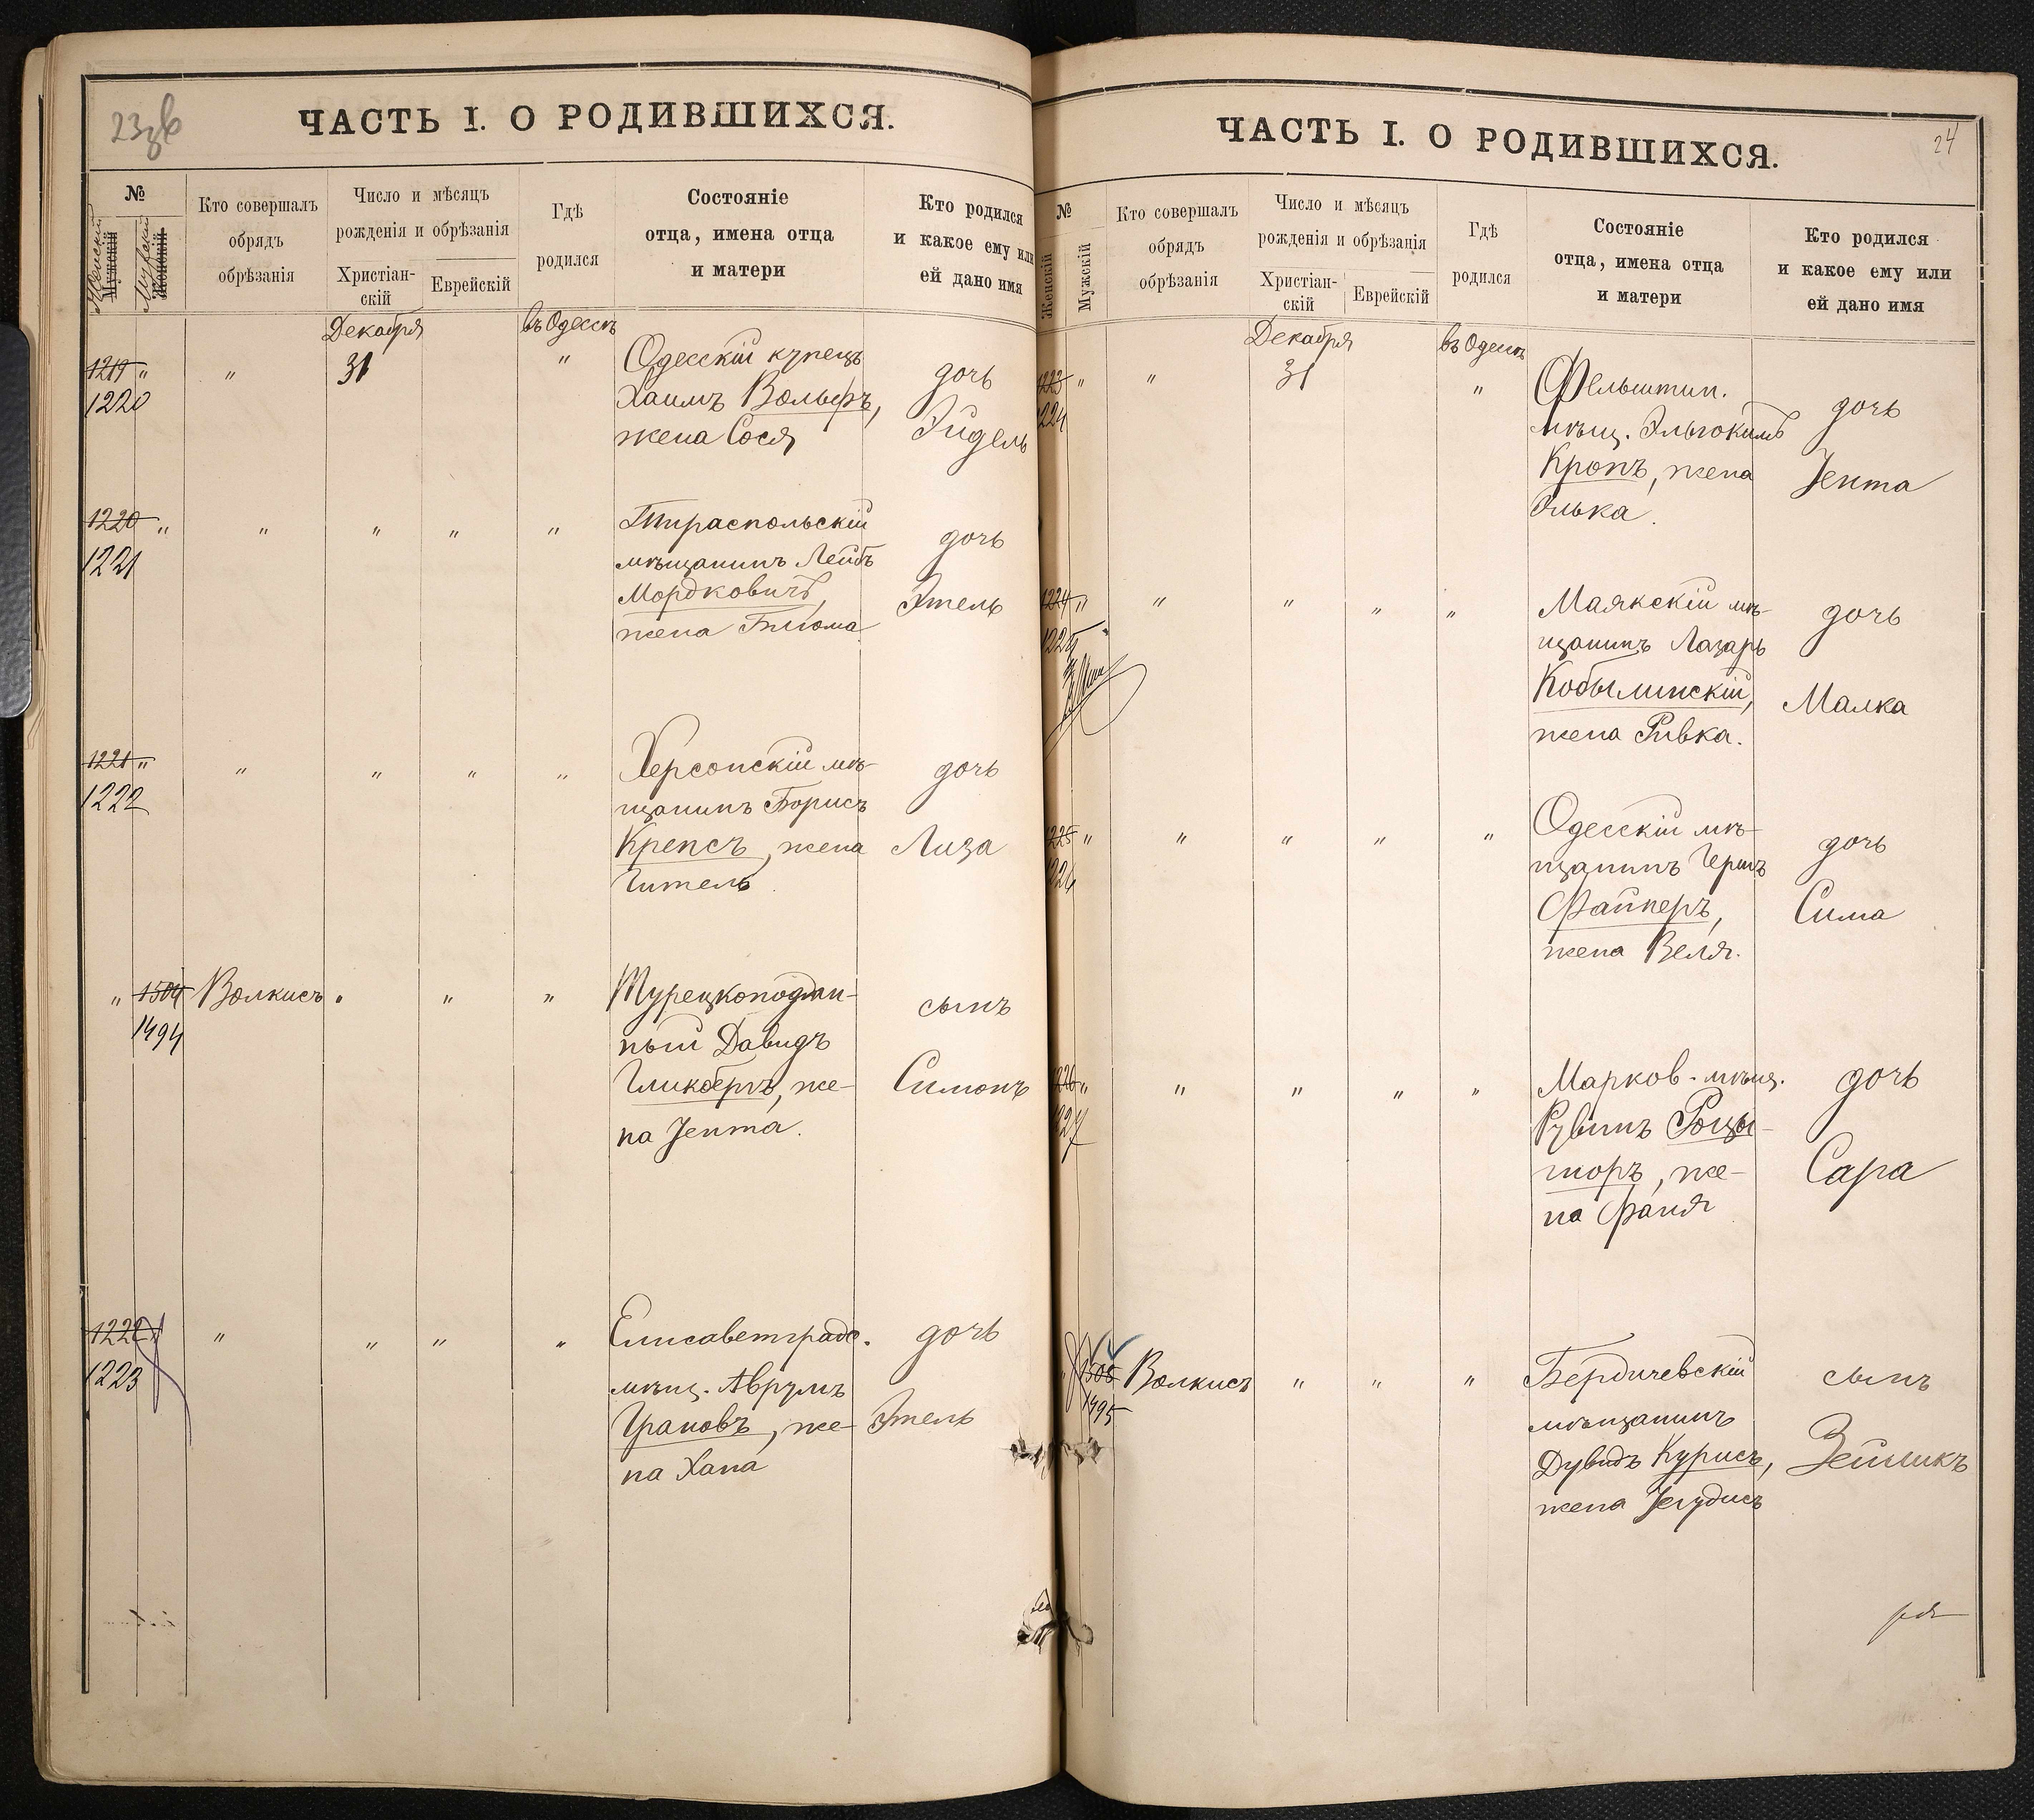 23зв
ЧАСТЬ I. О РОДИВШИХСЯ.
№
Женскій
Мужскій
Мужскій
Женскій
Кто совершалъ
обрядъ
обрѣзанія
Число и мѣсяцъ
рожденія и обрѣзанія
Христіан-
скій
Еврейскій
Гдѣ
родился
Состояніе
отца, имена отца
и матери
Кто родился
и какое ему или
ей дано имя
Декабря
въ Одессѣ
1219 "
1220
"
31
"
Одесскій купецъ
Хаимъ Вольфъ,
жена Сося
дочь
Эйдель
1220 "
1221
" " " "
Тираспольскій
мѣщанинъ Лейбъ
Мордковичъ,
жена Блюма
дочь
Этель
1221 "
1222
" " " "
Херсонскій мѣ-
щанинъ Борисъ
Крепсъ, жена
Гитель
дочь
Лиза
" 1504
1494
Волкисъ " " "
Турецкоподдан-
ный Давидъ
Гликбергъ, же-
на Ента.
сынъ
Симонъ
1222
1223
" " " "
Елисаветградс.
мѣщ. Аврумъ
Грановъ, же-
на Хана
дочь
Этель
24
ЧАСТЬ I. О РОДИВШИХСЯ.
№
Женскій
Мужскій
Кто совершалъ
обрядъ
обрѣзанія
Число и мѣсяцъ
рожденія и обрѣзанія
Христіан-
скій
Еврейскій
Гдѣ
родился
Состояніе
отца, имена отца
и матери
Кто родился
и какое ему или
ей дано имя
Декабря
въ Одессѣ
1223 "
1224
"
31
"
Фельштин.
мѣщ. Эльюкимъ
Кропъ, жена
Элька.
дочь
Ента
1224 "
1225
" " " "
Маякскій мѣ-
щанинъ Лазарь
Кобылинскій,
жена Ривка.
дочь
Малка
1225 "
1226
" " " "
Одесскій мѣ-
щанинъ Гершъ
Файнеръ,
жена Веля.
дочь
Сима
1226 "
1227
" " " "
Марков. мѣщ.
Рувинъ
же-
на Фаня
дочь
Сара
1505
1495
Волкисъ " " "
Бердичевскій
мѣщанинъ
Дувидъ Курисъ,
жена Іегудисъ
сынъ
Зейликъ